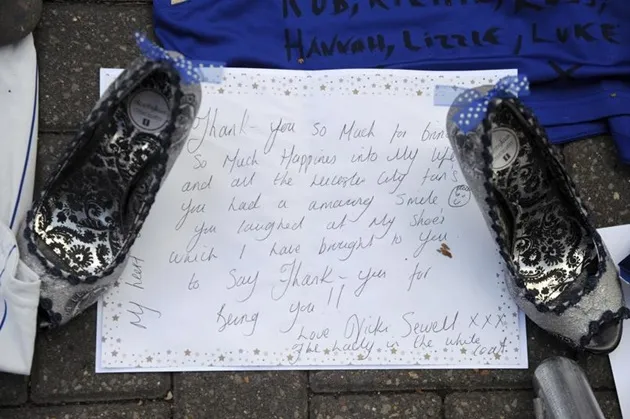 ROB, RICHIE, ROSS,
HANNAH, LIZZIE, LUKE
X
Thank-you so Much for brin
So Much Happiness into My life
and all the Leicester City fan's
you had a amazing Smile
you laughed at My Shoes
which I have brought to you
to Say Thank-you for
being you!!
My heart
Love Vicki Sewell xxx
The Lady in the white
coat